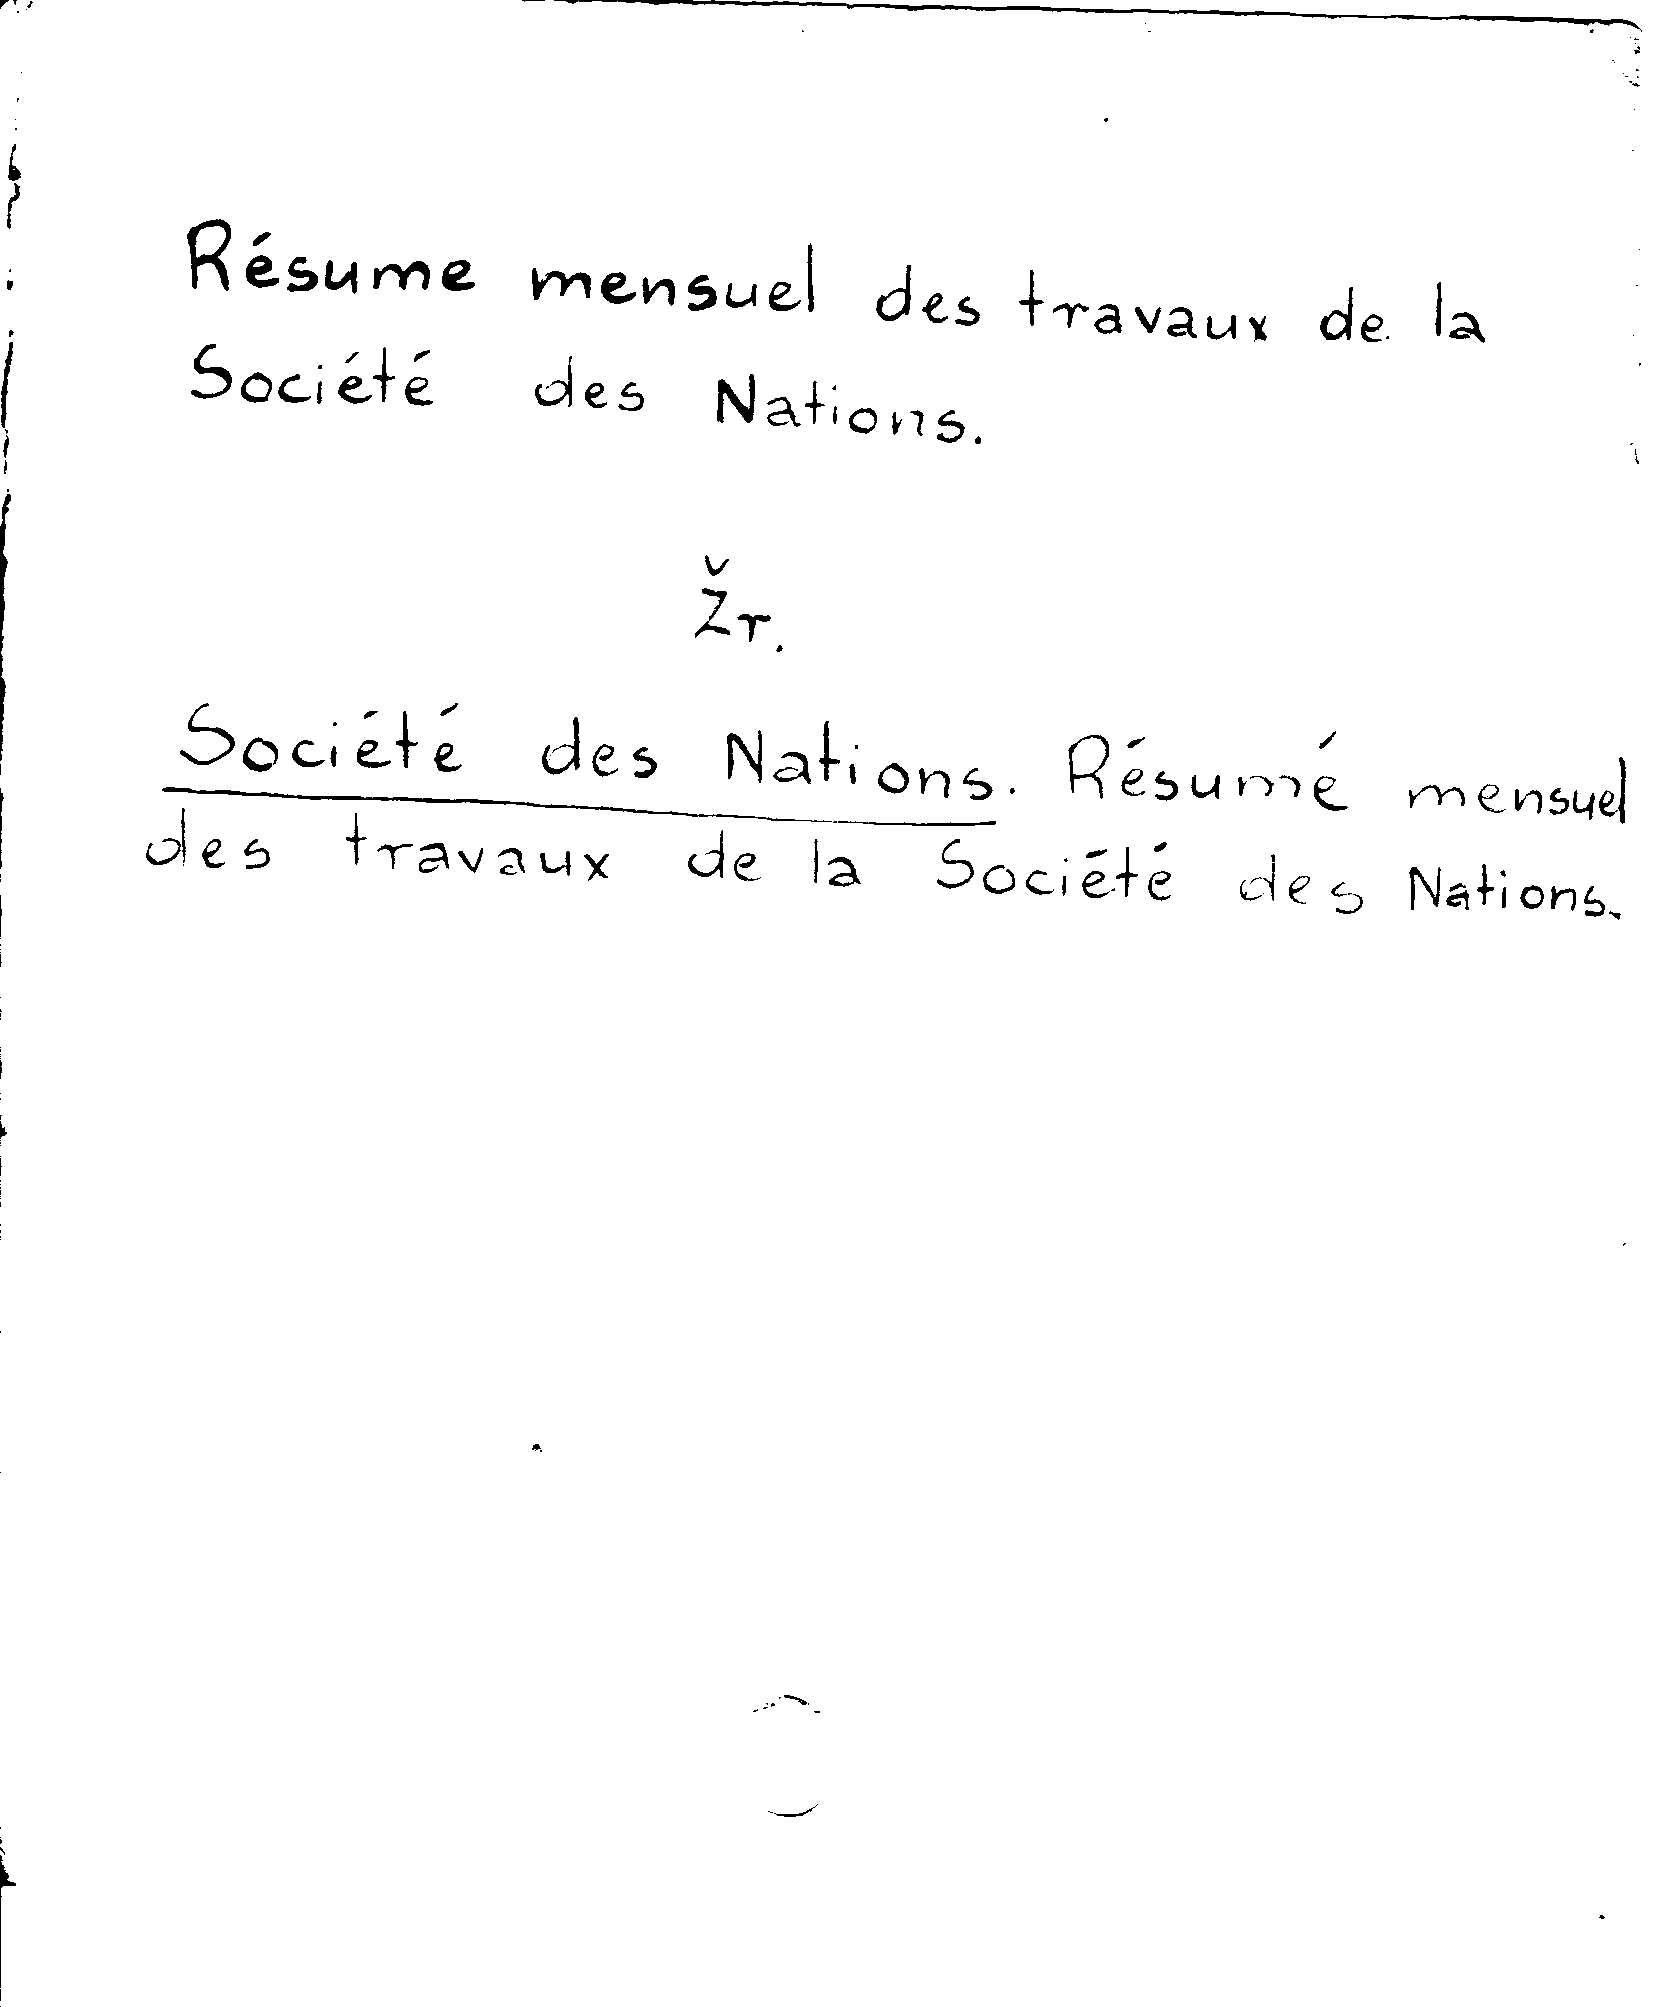 Résume mensuel des travaux de la
Société des Nations.
Žr.
Société des Nations. Résumé mensuel
des travaux de la Société des Nations.